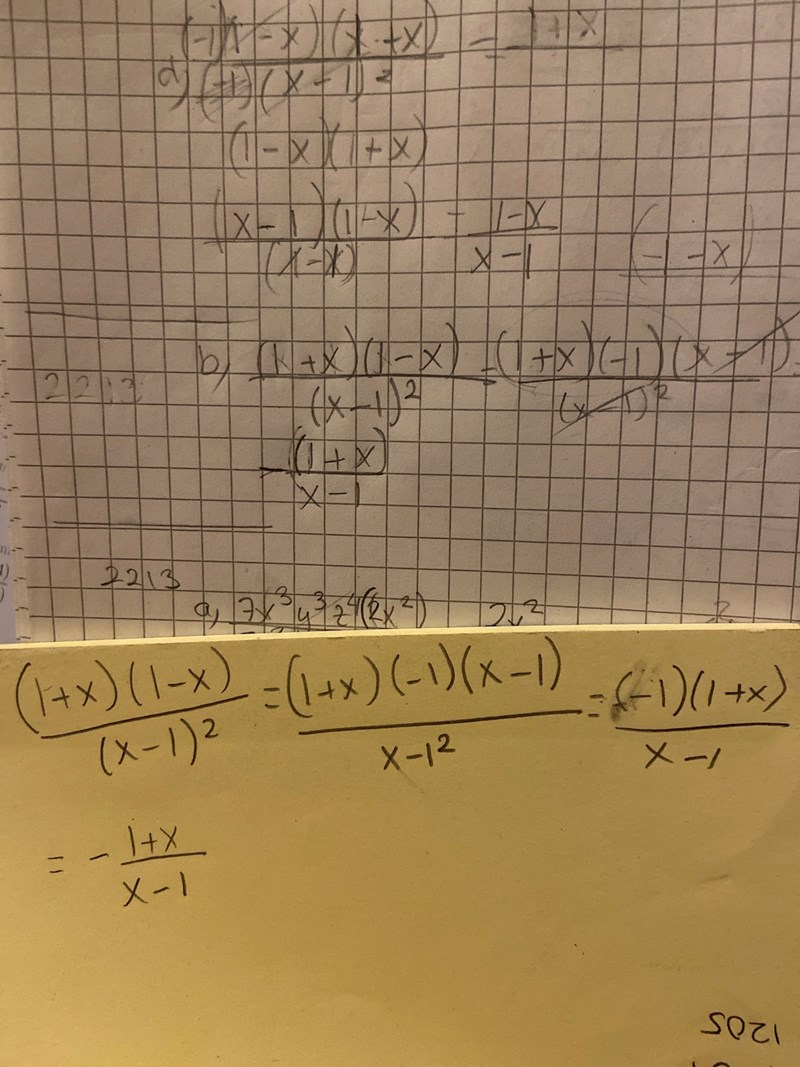 (-1)(1-x)(x+x) / (x-1)² = 1+x
(1-x)(1+x)
(x-1)(1-x) / (x-x) - 1-x / x-1 (-1-x)
b) (1+x)(1-x) / (x-1)² = (1+x)(-1)(x-1) / (x-1)² =
2213
-(1+x) / x-1
2213
a) 7x³y³z⁴(2x²) 2x²
(1+x)(1-x) / (x-1)² = (1+x)(-1)(x-1) / x-1² = (-1)(1+x) / x-1
= - 1+x / x-1
1205